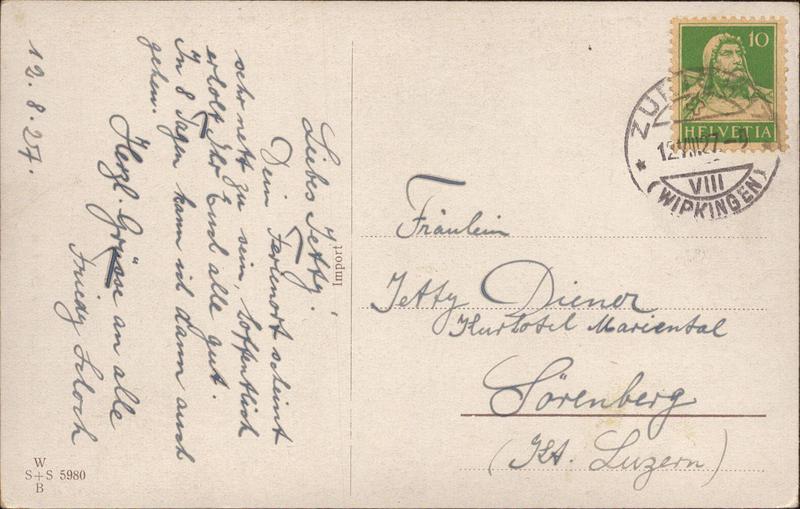 12.8.27.
Liebes Jetty!
Dein Ferienort scheint
sehr nett zu sein, hoffentlich
erholt Ihr Euch alle gut.
In 8 Tagen kann ich dann auch
gehen.
Herzl. Grüsse an alle
Friedy Schoch
Import
W
S+S 5980
B
10
HELVETIA
ZÜRICH
12.VIII.27.
VIII
(WIPKINGEN)
Fräulein
Jetty Diener
Kurhotel Mariental
Sörenberg
(Kt. Luzern)